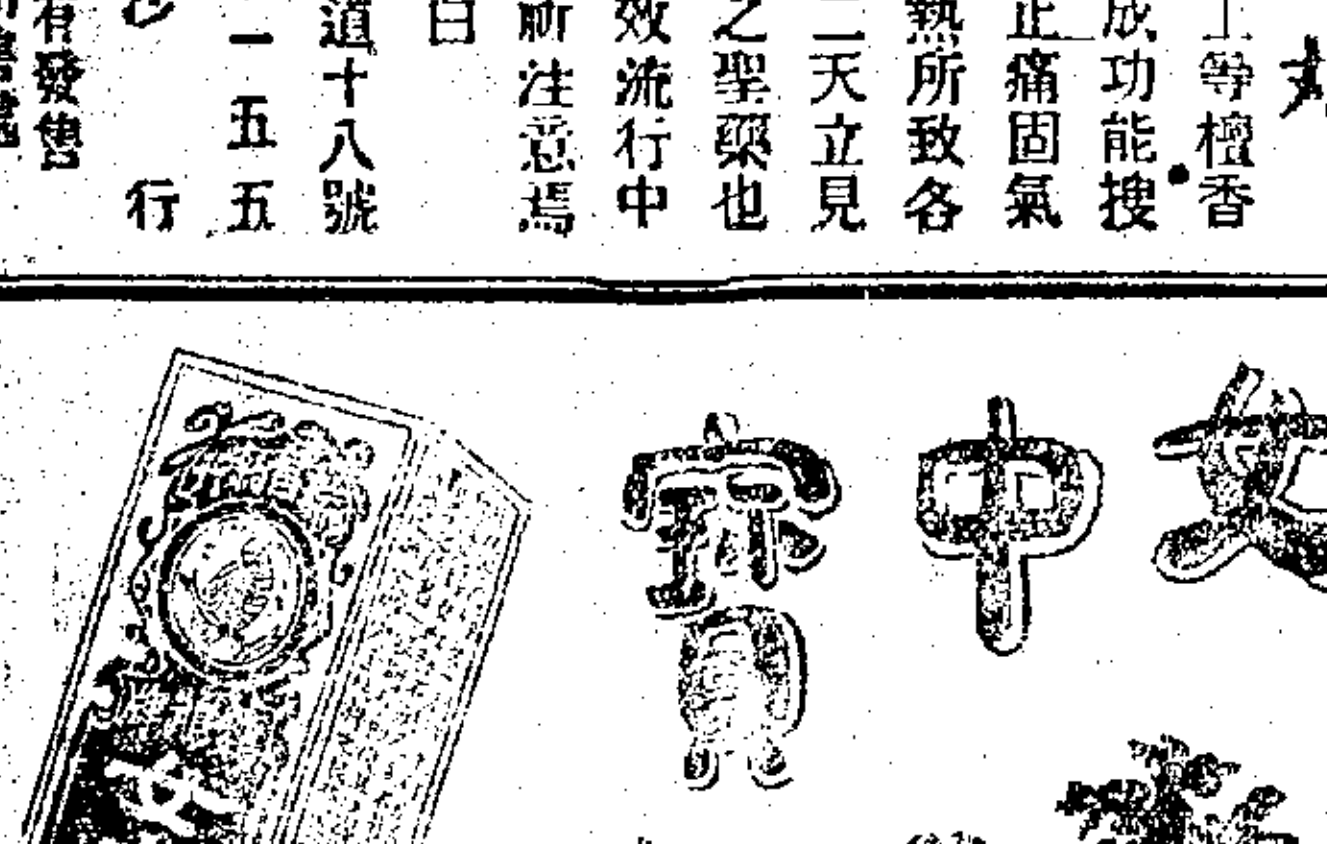 丸
上等檀香
成功能搜
止痛固氣
熱所致各
二天立見
之聖藥也
效流行中
祈注意焉
白
道十八號
一五五
行
有發售
女中寶